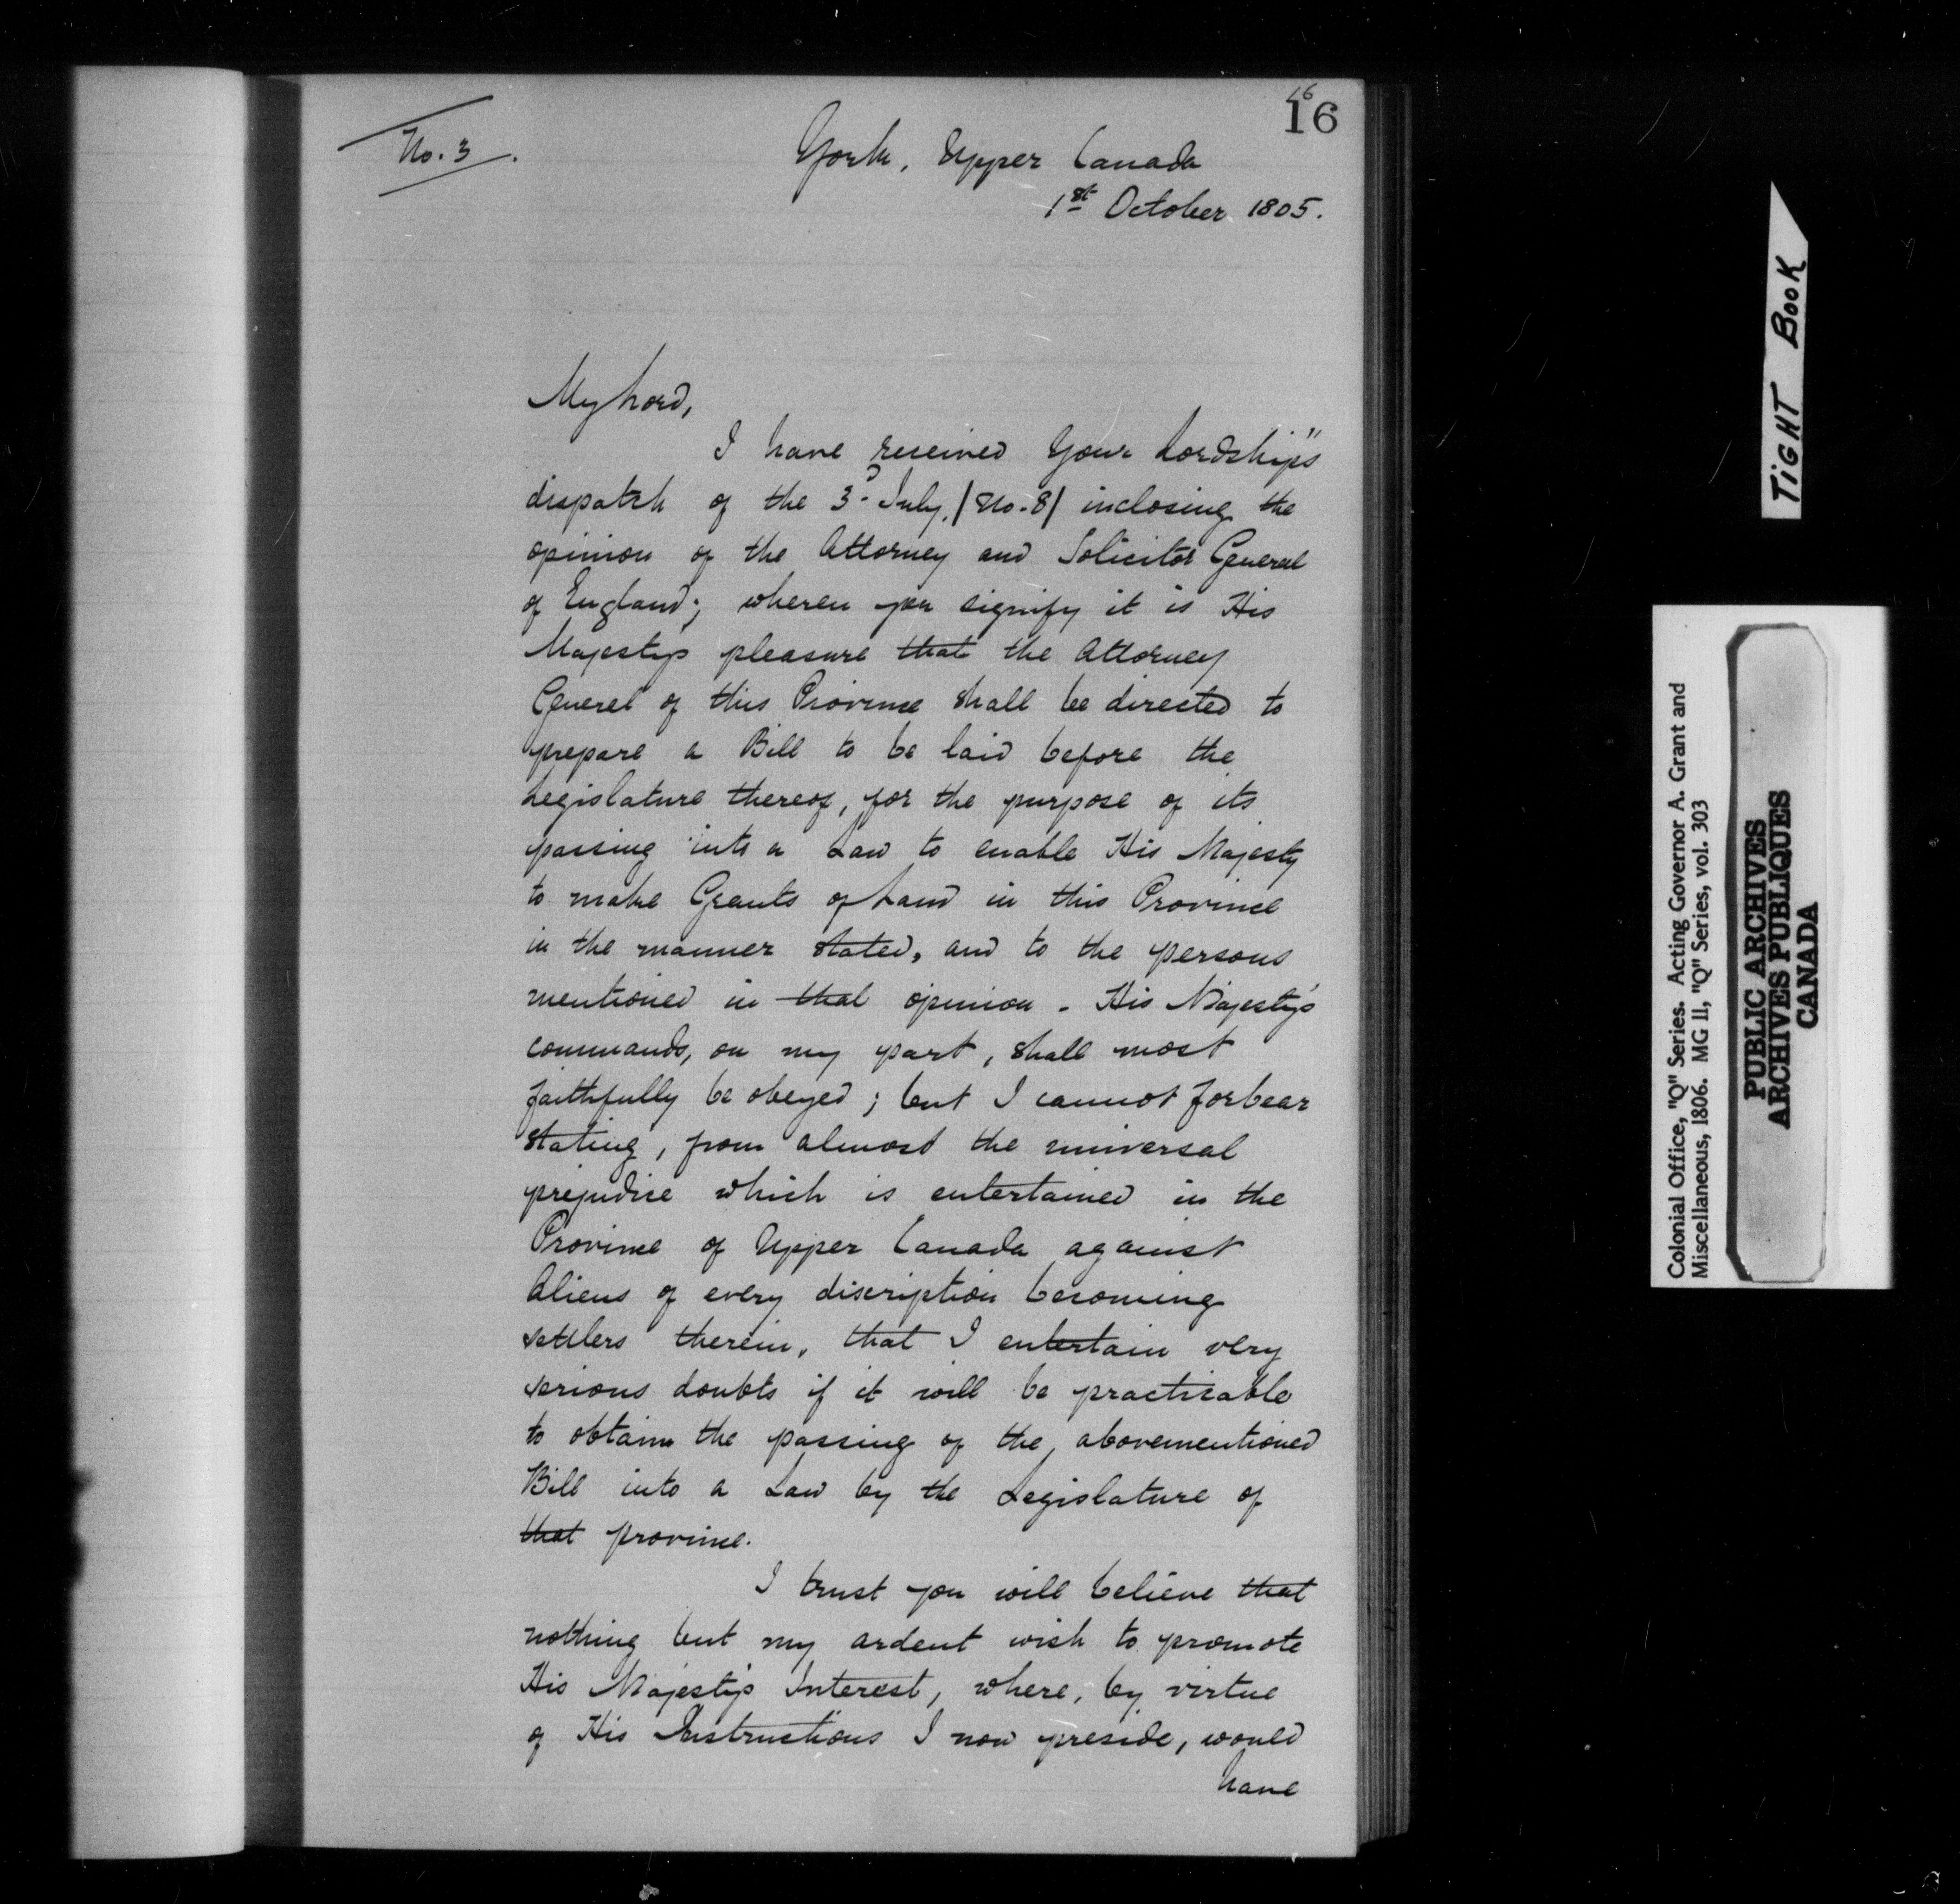 16
16
No. 3.
York, Upper Canada
1st October 1805.
My Lord,
I have received Your Lordship's
dispatch of the 3d July, /No. 8/ inclosing the
opinion of the Attorney and Solicitor General
of England; wherein you signify it is His
Majesty's pleasure that the Attorney
General of this Province shall be directed to
prepare a Bill to be laid before the
Legislature thereof, for the purpose of its
passing into a Law to enable His Majesty
to make Grants of Land in this Province
in the manner stated, and to the persons
mentioned in that opinion - His Majesty's
commands, on my part, shall most
faithfully be obeyed; but I cannot forbear
stating, from almost the universal
prejudice which is entertained in the
Province of Upper Canada against
Aliens of every discription becoming
settlers therein, that I entertain very
serious doubts if it will be practicable
to obtain the passing of the abovementioned
Bill into a Law by the Legislature of
that province.
I trust you will believe that
nothing but my ardent wish to promote
His Majesty's Interest, where, by virtue
of His Instructions I now preside, would
have
TIGHT BOOK
Colonial Office, "Q" Series. Acting Governor A. Grant and
Miscellaneous, 1806. MG 11, "Q" Series, vol. 303
PUBLIC ARCHIVES
ARCHIVES PUBLIQUES
CANADA